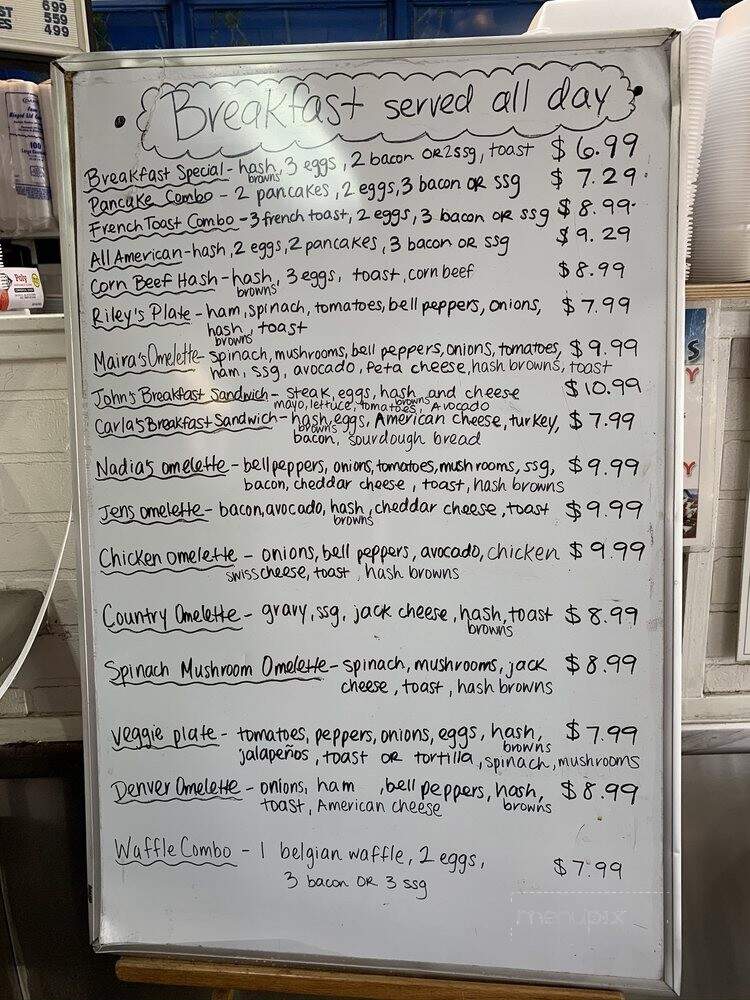 699
559
499
Breakfast served all day
Breakfast Special - hash browns, 3 eggs, 2 bacon OR 2 ssg, toast $6.99
Pancake Combo - 2 pancakes, 2 eggs, 3 bacon OR ssg $7.29
French Toast Combo - 3 french toast, 2 eggs, 3 bacon OR ssg $8.99
All American - hash, 2 eggs, 2 pancakes, 3 bacon OR ssg $9.29
Corn Beef Hash - hash browns, 3 eggs, toast, corn beef $8.99
Riley's Plate - ham, spinach, tomatoes, bell peppers, onions, $7.99
hash browns, toast
Maira's Omelette - spinach, mushrooms, bell peppers, onions, tomatoes, $9.99
ham, ssg, avocado, feta cheese, hash browns, toast
John's Breakfast Sandwich - steak, eggs, hash browns and cheese $10.99
mayo, lettuce, tomatoes, Avocado
Carla's Breakfast Sandwich - hash browns, eggs, American cheese, turkey, $7.99
bacon, sourdough bread
Nadia's omelette - bell peppers, onions, tomatoes, mushrooms, ssg, $9.99
bacon, cheddar cheese, toast, hash browns
Jens omelette - bacon, avocado, hash browns, cheddar cheese, toast $9.99
Chicken omelette - onions, bell peppers, avocado, chicken $9.99
swiss cheese, toast, hash browns
Country Omelette - gravy, ssg, jack cheese, hash browns, toast $8.99
Spinach Mushroom Omelette - spinach, mushrooms, jack $8.99
cheese, toast, hash browns
Veggie plate - tomatoes, peppers, onions, eggs, hash browns, $7.99
jalapeños, toast OR tortilla, spinach, mushrooms
Denver Omelette - onions, ham, bell peppers, hash browns, $8.99
toast, American cheese
Waffle Combo - 1 belgian waffle, 2 eggs, $7.99
3 bacon OR 3 ssg
menupix